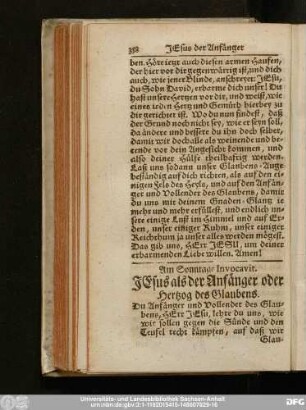 358 JEsus der Anfänger
ben. Höre jetzt auch diesen armen Hauffen,
der hier vor dir gegenwärtig ist, und dich
auch, wie jener Blinde, anschreyet: JEsu,
du Sohn David, erbarme dich unser! Du
hast unsere Hertzen vor dir, und weist, wie
eines ieden Hertz und Gemüth hierbey zu
dir gerichtet ist. Wo du nun findest, daß
der Grund noch nicht sey, wie er seyn soll,
da ändere und bessere du ihn doch selber,
damit wir doch alle als weinende und be-
tende vor dein Angesicht kommen, und
also deiner Hülfe theilhaftig werden.
Laß uns sodann unser Glaubens-Auge
beständig auf dich richten, als auf den ei-
nigen Fels des Heyls, und auf den Anfän-
ger und Vollender des Glaubens, damit
du uns mit deinem Gnaden-Glantz ie
mehr und mehr erfüllest, und endlich un-
sere einige Lust im Himmel und auf Er-
den, unser einiger Ruhm, unser einiger
Reichthum ja unser alles werden mögest.
Das gib uns, HErr JESU, um deiner
erbarmenden Liebe willen. Amen!
Am Sonntage Invocavit.
JEsus als der Anfänger oder
Hertzog des Glaubens.
Du Anfänger und Vollender des Glau-
bens, HErr JEsu, lehre du uns, wie
wir sollen gegen die Sünde und den
Teufel recht kämpfen, auf daß wir
Glau-
Universitäts- und Landesbibliothek Sachsen-Anhalt
DFG